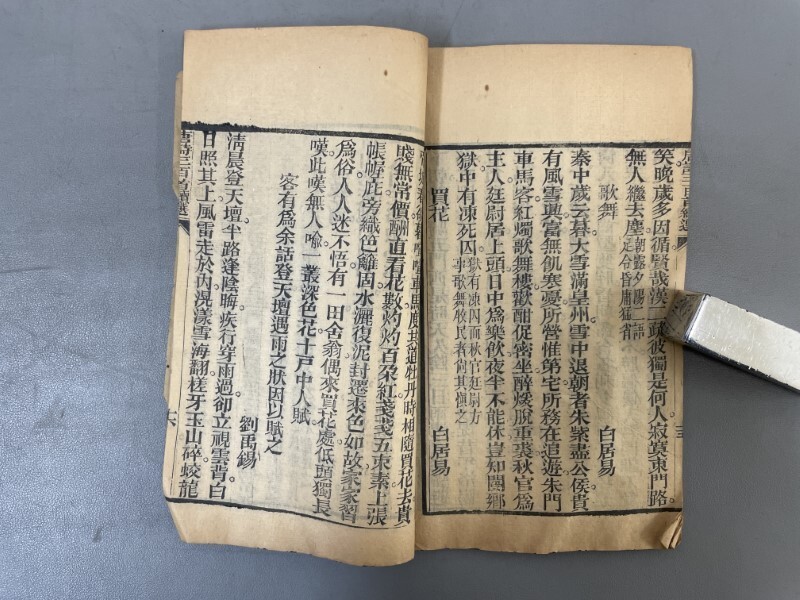 笑晚歲多因循賢哉漢二疏彼獨是何人寂寞東門路
無人繼去塵朝露夕陽二語足令昏庸猛省
歌舞
白居易
秦中歲云暮大雪滿皇州雪中退朝者朱紫盡公侯貴
有風雪興富無飢寒憂所營惟第宅所務在追遊朱門
車馬客紅燭歌舞樓歡酣促密坐醉煖脫重裘秋官爲
主人廷尉居上頭日中爲樂飲夜半不能休豈知閿鄉
獄中有凍死囚獄有凍囚而秋官廷尉方事歌舞牧民者尚其愼之
買花
白居易
車馬度共道牡丹時相隨買花去貴
賤無常價酬直看花數灼灼百朶紅戔戔五束素上張
帳幄庇旁織笆籬固水灑復泥封遷來色如故家家習
爲俗人人迷不悟有一田舍翁偶來買花處低頭獨長
嘆此嘆無人喩一叢深色花十戸中人賦
客有爲余話登天壇遇雨之狀因以賦之
劉禹錫
清晨登天壇半路逢陰晦疾行穿雨過卻立視雲背白
日照其上風雷走於內滉漾雪海翻槎牙玉山碎蛟龍
唐詩三百首續選
六